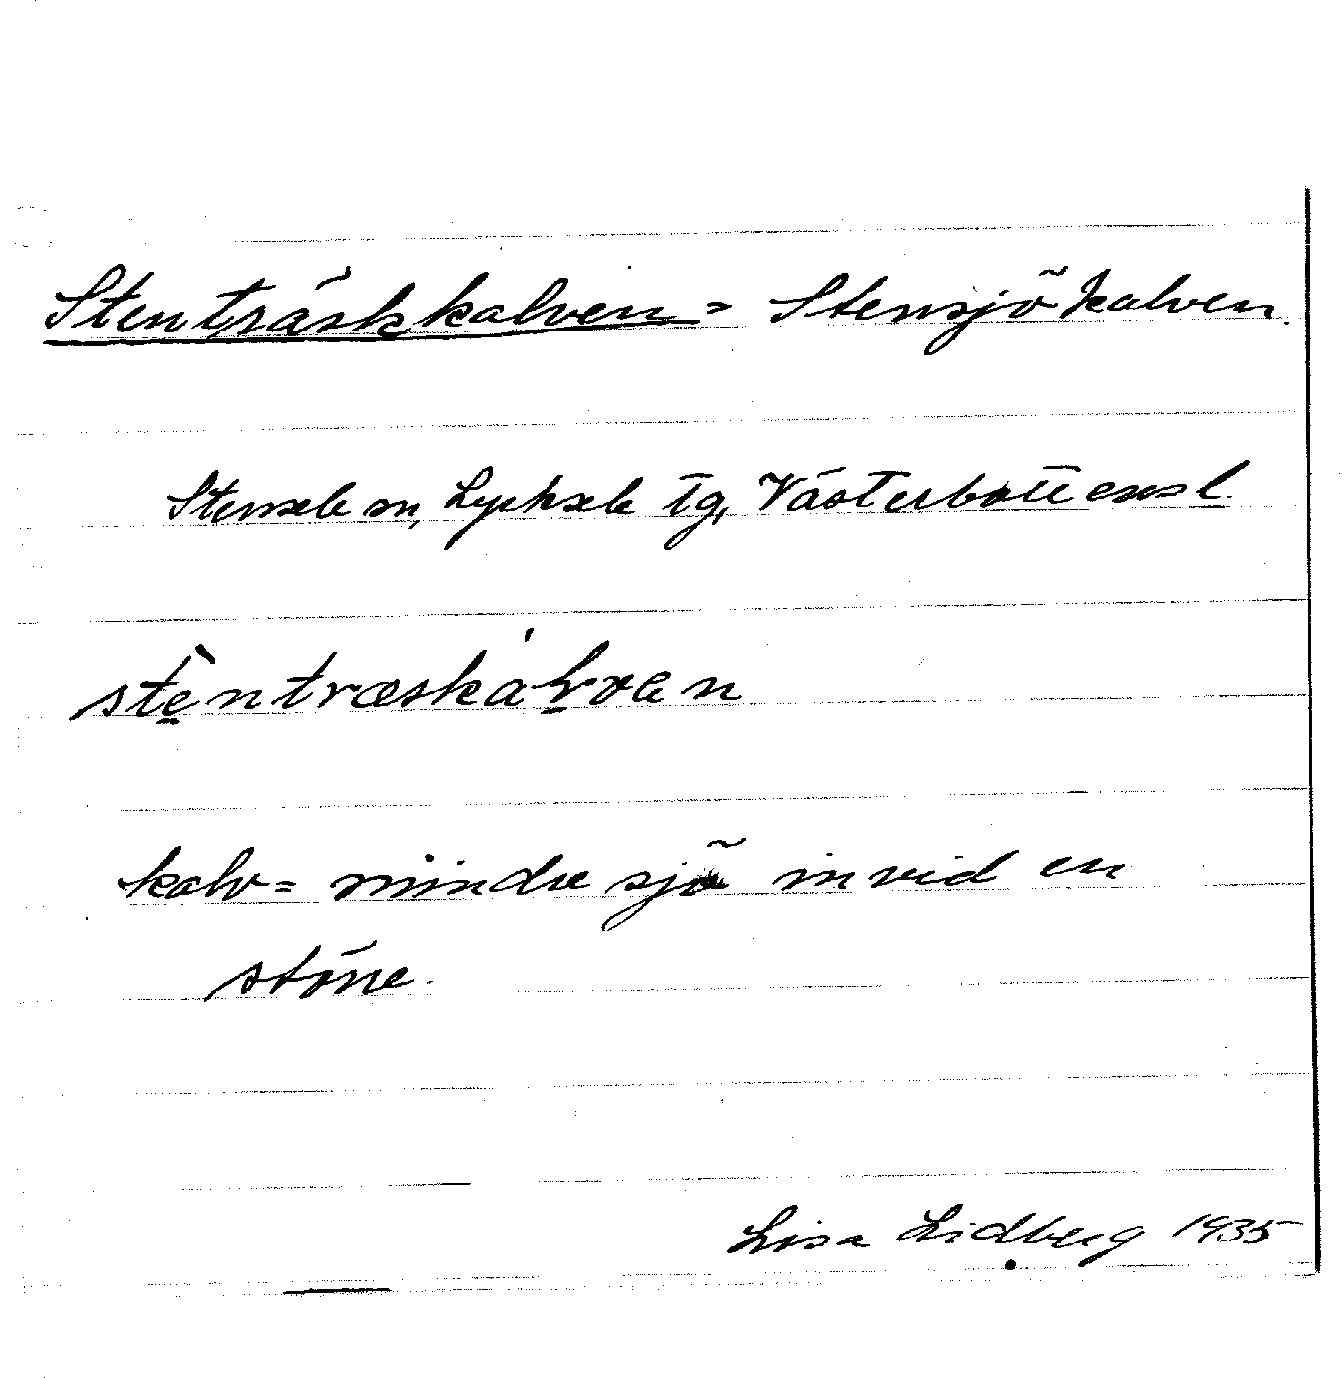 Stenträskkalven = Stensjökalven.
Stensele sn, Lycksele tg, Västerbottens l.
stèntræskálven
kalv = mindre sjö invid en
större.
Lisa Lidberg 1935